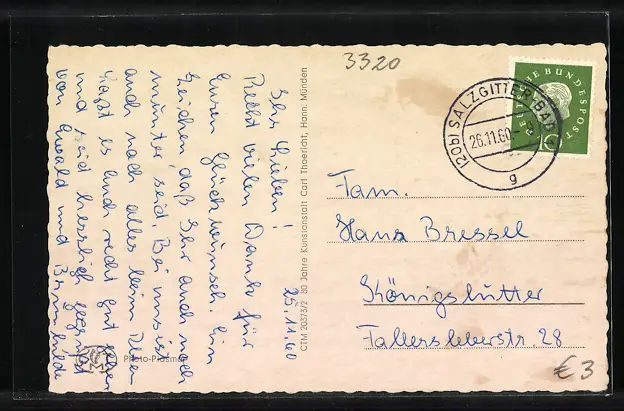 3320
DEUTSCHE BUNDESPOST
10
(20b) SALZGITTER-
26.11.60
g
Fam.
Hans Bressel
Königslutter
Fallerslebenstr. 28
€ 3
CTM 20373/2 80 Jahre Kunstanstalt Carl Thoericht, Hann. Münden
25.11.60
Ihr Lieben!
Recht vielen Dank für
Euren Glückwunsch. Ein
Zeichen, daß Ihr auch noch
munter seid. Bei uns ist
auch noch alles beim Alten
Laßt es Euch recht gut gehen
und seid herzlich gegrüßt
von Ewald und Brunhilde
Photo-Plasmor